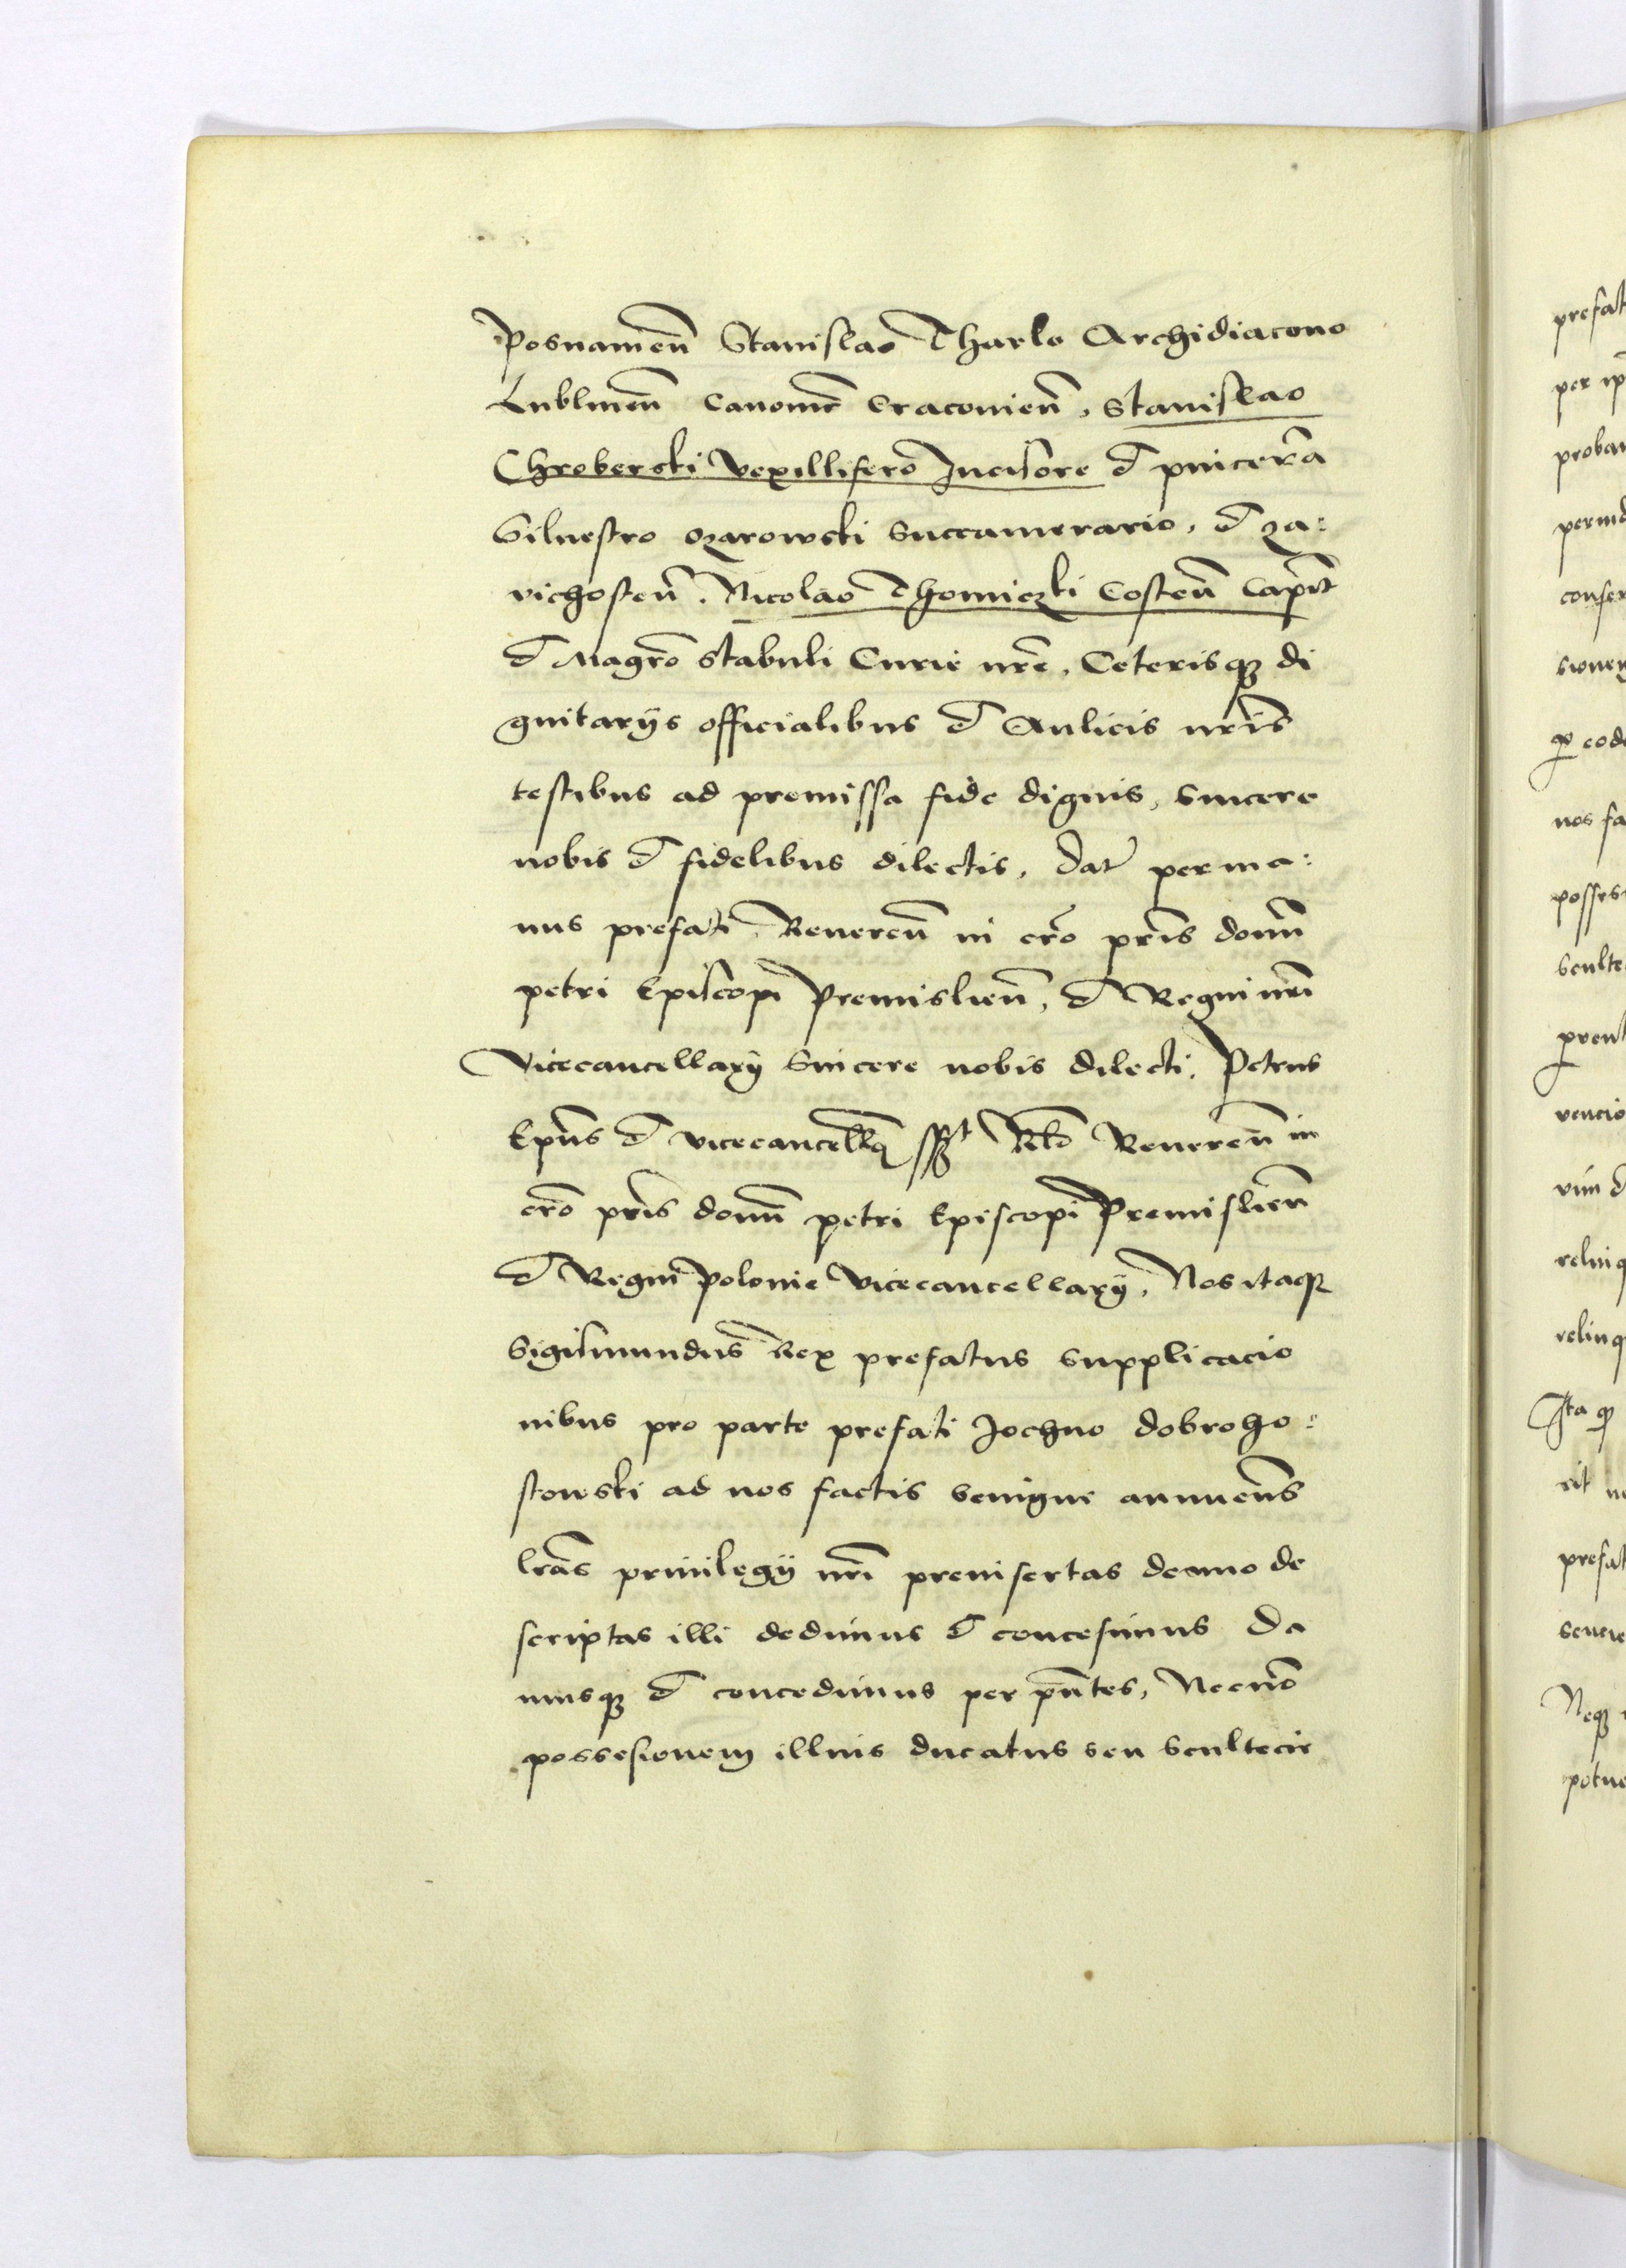 Posnamien̄ Stanislao Tharlo Archidiacono
Lublinen̄ Canonic̄ Cracouien̄, Stanislao
Chroberski vexillifero Incisore et pincerā
Siluestro ozarowski Succamerario, et za:
vichosten̄. Nicolao Thomiczki Costen̄ Capit̄
et Magr̄o stabuli Curie nr̄e, Ceterisqꝫ di
gnitarijs officialibus et Aulicis nr̄is
testibus ad premissa fide dignis, sincere
nobis et fidelibus dilectis. Dat̄ per ma:
nus prefati Reueren̄ in cr̄o pr̄is domī
petri Episcopi Premislien̄, et Regni nr̄i
Vicecancellarij sincere nobis dilecti. Petrus
Ep̄us et vicecancell̄ꝯ sſꝭt Rl̄o Reueren̄ in
cr̄o pr̄is domī petri Episcopi Premislien̄
et Regni polonie Vicecancellarij. Nos itaqꝫ
Sigismundus Rex prefatus supplicacio
nibus pro parte prefati Jochno dobroho:
stowski ad nos factis benigne annuen̄s
lr̄as priuilegij nr̄i preinsertas denuo de
scriptas illi dedimus et concesimus Da
musqꝫ et concedimus per pn̄tes, Necnō
possesionem illius ducatus seu scultecie
prefat
per ip̄
proba
confer
nos fa
posses
sculte
vencio
relinq
relinq
Ita qꝫ
prefat
Neqꝫ
potue